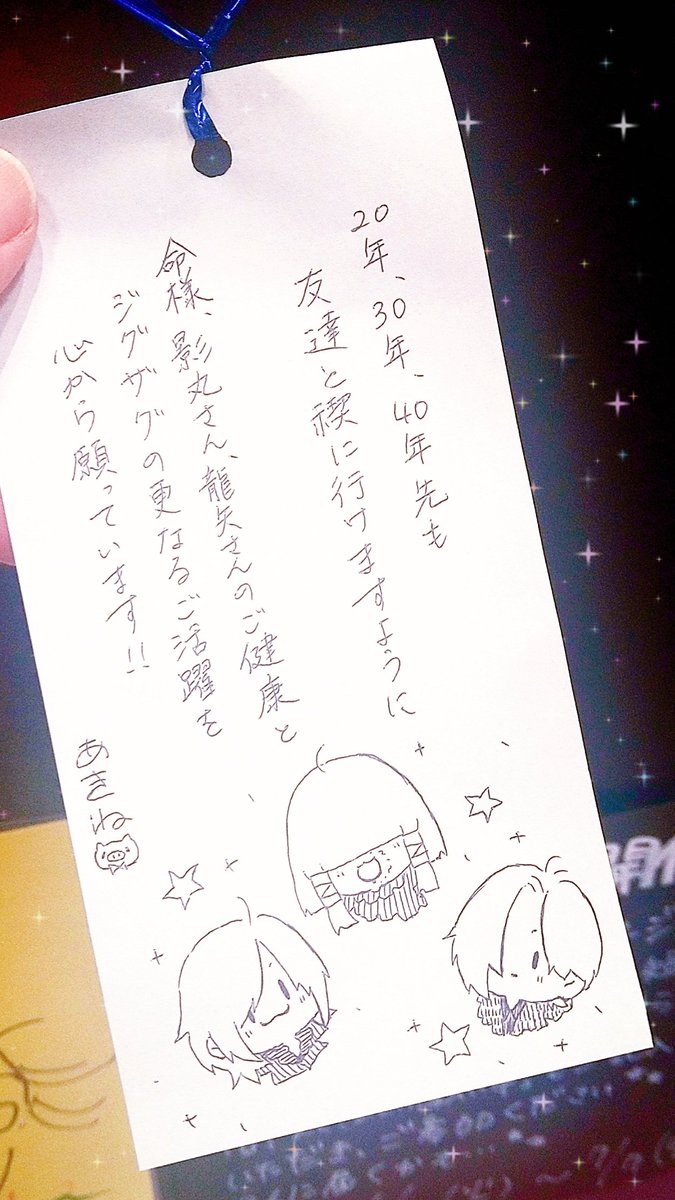 20年、30年、40年先も
友達と禊に行けますように
命様、影丸さん、龍矢さんのご健康と
ジグザグの更なるご活躍を
心から願っています!!
あきね